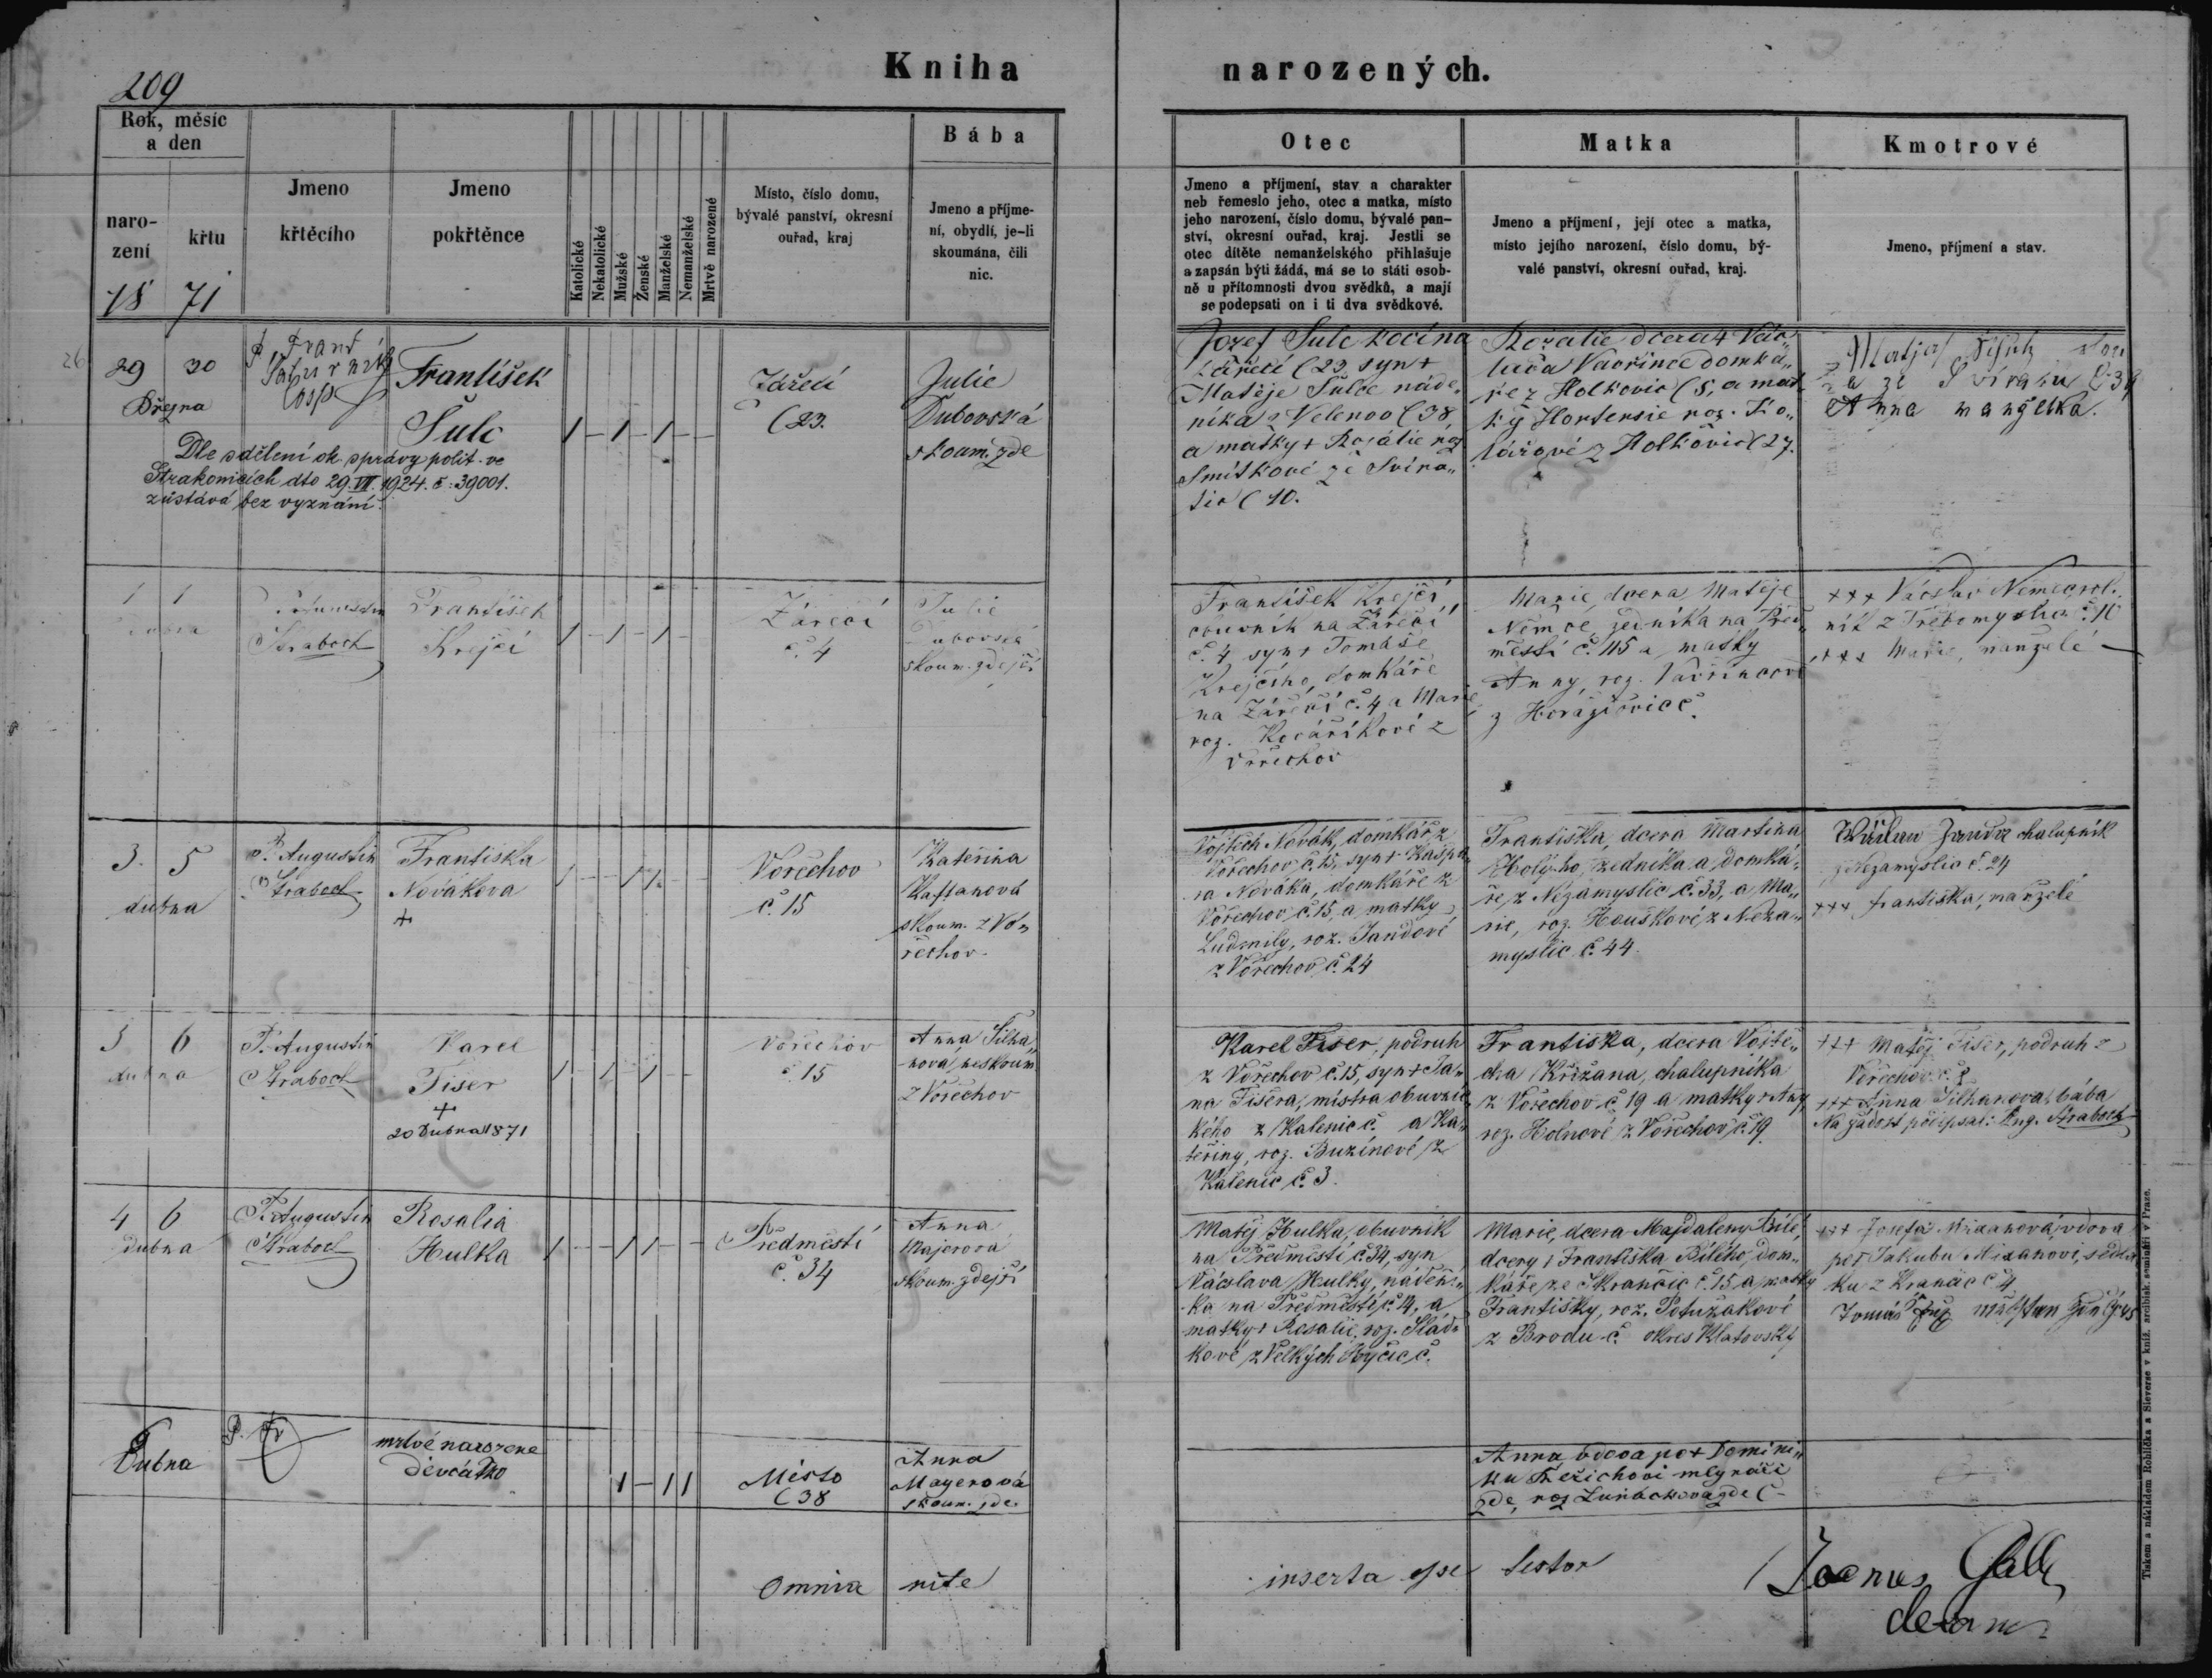 209
Kniha narozených.
Rok, měsíc a den
narození
křtu
18 71
Jmeno křtěcího
Jmeno pokřtěnce
Katolické
Nekatolické
Mužské
Ženské
Manželské
Nemanželské
Mrtvě narozené
Místo, číslo domu,
bývalé panství, okresní
ouřad, kraj
Bába
Jmeno a příjme-
ní, obydlí, je-li
skoumána, čili
nic.
Otec
Jmeno a příjmení, stav a charakter
neb řemeslo jeho, otec a matka, místo
jeho narození, číslo domu, bývalé pan-
ství, okresní ouřad, kraj. Jestli se
otec dítěte nemanželského přihlašuje
a zapsán býti žádá, má se to státi osob-
ně u přítomnosti dvou svědků, a mají
se podepsati on i ti dva svědkové.
Matka
Jmeno a příjmení, její otec a matka,
místo jejího narození, číslo domu, bý-
valé panství, okresní ouřad, kraj.
Kmotrové
Jmeno, příjmení a stav.
26
29 30
Března
P. Frant
František
Šulc
1 – 1 – 1 – –
Dle sdělení ok. správy polit. ve
Strakonicích dto 29.VII.1924. č: 39001.
zůstává bez vyznání.
Zářečí
č 23.
Julie
Dubovská
skoum. zde
Jozef Šulc
Zářečí č 23. syn +
Matěje Šulce náde„
níka z Velenov č 38
a matky + Rozálie roz
Smítkové ze Svíra„
tic č 10.
Rozalie dcera +
Vavřince domká„
ře z Holkovic č 5, a mat
ky Hortensie roz. Ko„
lářové z Holkovic č 27.
Matjas
Anna manželka.
1 1
dubna
P. Augustin
Straboch
František
Krejčí
1 – 1 – 1 –
Zářečí
č. 4
Julie
Dubovská
skoum. zdejší
František Krejčí,
obuvník na Zářečí
č. 4, syn + Tomáše
Krejčího, domkáře
na Zářečí č. 4 a Marie
roz. Kovaříkové z
Vořechov
Marie, dcera Matěje
Němce, zedníka na Před„
městí č. 115 a matky
Anny, roz. Vavřincové
z Horažďovic č.
+++ Václav Němec, rol„
ník z Třebomyslic č. 10
+++ Marie, manželé
3. 5
dubna
P. Augustin
Straboch
Františka
Nováková
+
1 – – 1 1 –
Vořechov
č. 15
Kateřina
Kaftanová
skoum. z Vo„
řechov
Vojtěch Novák, domkář z
Vořechov č. 15, syn + Kašpa„
ra Nováka, domkáře z
Vořechov č. 15, a matky
Ludmily, roz. Jandové
z Vořechov č. 24
Františka, dcera Martina
Holýho, zedníka a domká„
ře z Nezamyslic č. 33, a Ma„
rie, roz. Houškové z Neza„
myslic č. 44.
Václav Janda chalupník
z Nezamyslic č. 24
+++ františka, manželé
5 6
dubna
P. Augustin
Straboch
Karel
Fišer
+
20 Dubna 1871
1 – 1 – 1 – –
Vořechov
č. 15
Anna Šilha„
nová, neskoum.
z Vořechov
Karel Fišer, podruh
z Vořechov č. 15, syn + Ja„
na Fišera, mistra obuvnic„
kého z Kalenic č. a Ka„
teřiny, roz. Buzínové z
Kalenic č. 3.
Františka, dcera Vojtě„
cha Křižana, chalupníka
z Vořechov č 19 a matky + Anny,
roz. Holnové z Vořechov č. 19.
+++ Matěj Fišer, podruh z
Vořechov č.
+++ Anna Šilhanova, bába
Na žádost podepsal: Aug. Straboch
4 6
dubna
P. Augustin
Straboch
Rosalia
Hulka
1 – – 1 1 – –
Předměstí
č. 34
Anna
Majerová
skoum. zdejší
Matěj Hulka, obuvník
na Předměstí č. 34, syn
Václava Hulky, náděn„
ka na Předměstí č. 14, a
matky + Rosalie, roz. Slád„
kové z Velkých Hyčic č.
Marie, dcera Majdaleny Bílé,
dcery + Františka Bílého, dom„
káře ze Skrančic č. 15 a matky
Františky, roz. Potužákové
z Brodu č. okres Klatovský
+++ Josefa Mixanová, vdova
po + Jakubu Mixanovi, sedlá„
ku z Krančic č 4
Tomáš
Dubna
P. Fr
mrtvě narozene
děvčátko
1 – 1 1
Město
č 38
Anna
Mayerová
skoum. zde.
Anna vdova po + Domini„
ku Řežichovi mlynáři
zde, roz Luňáckova zde č –
Omnia rite inserta esse testor
Joannes Galle
decanus
Tiskem a nákladem Rohlíčka a Sieverse v kníž. arcibisk. semináři v Praze.